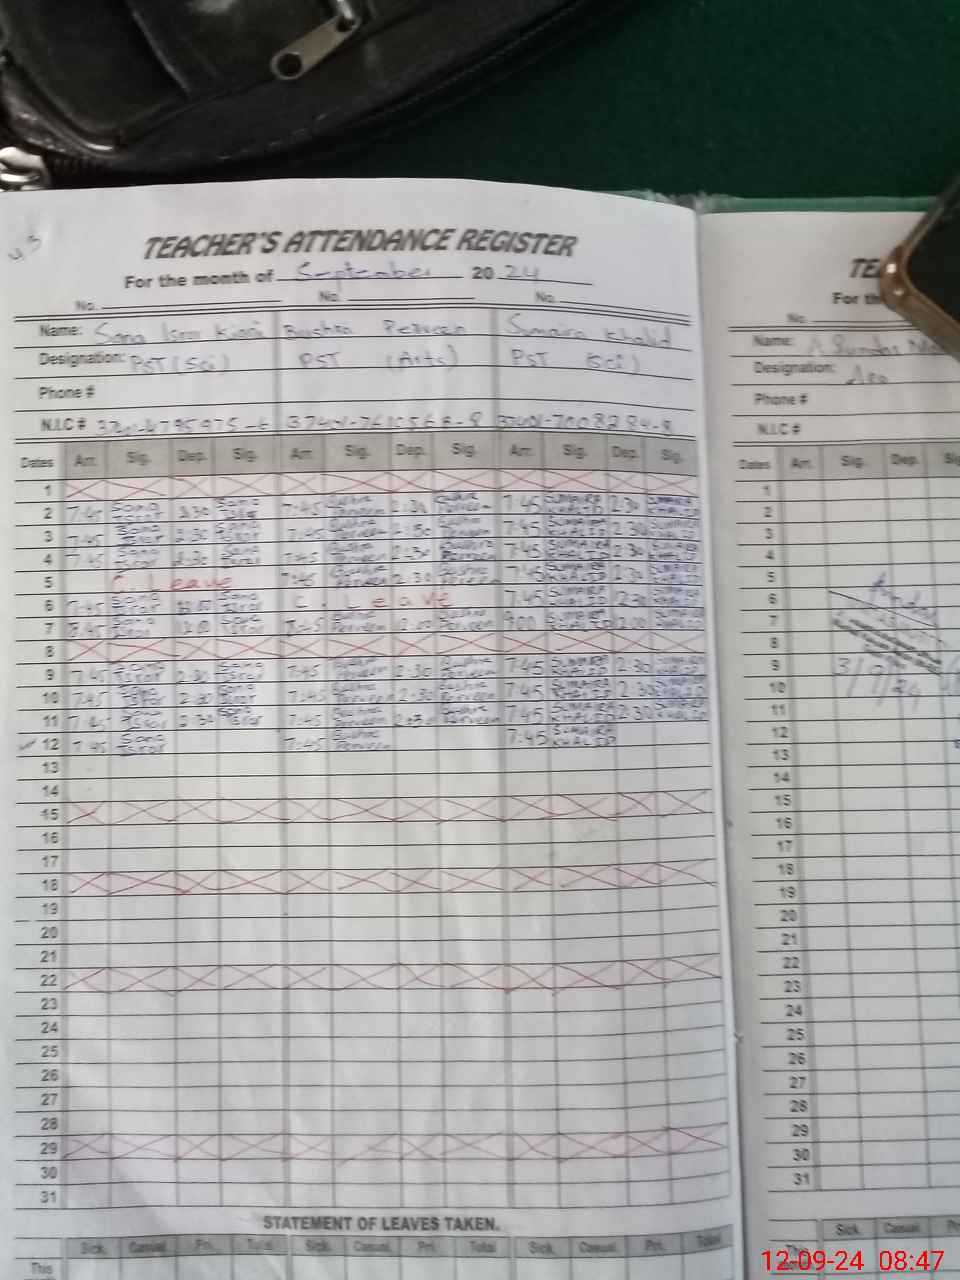 TEACHER'S ATTENDANCE REGISTER
For the month of September 20 24
No. No. No.
Name: Sana Israr Kiani Bushra Perveen Sumaira Khalid
Designation: PST (Sci) PST (Arts) PST (Sci)
Phone #
N.I.C #
Dates Arr. Sig. Dep. Sig. Arr. Sig. Dep. Sig. Arr. Sig. Dep. Sig.
1
2 7:45 Sana Israr 2:30 Sana Israr 7:45 Bushra Perveen 2:30 Bushra Perveen 7:45 SUMAIRA KHALID 2:30 SUMAIRA KHALID
3 7:45 Sana Israr 2:30 Sana Israr 7:45 Bushra Perveen 2:30 Bushra Perveen 7:45 SUMAIRA KHALID 2:30 SUMAIRA KHALID
4 7:45 Sana Israr 2:30 Sana Israr 7:45 Bushra Perveen 2:30 Bushra Perveen 7:45 SUMAIRA KHALID 2:30 SUMAIRA KHALID
5 C. Leave 7:45 Bushra Perveen 2:30 Bushra Perveen 7:45 SUMAIRA KHALID 2:30 SUMAIRA KHALID
6 7:45 Sana Israr Sana Israr C. Leave 7:45 SUMAIRA KHALID 2:30 SUMAIRA KHALID
7 8:45 Sana Israr 12:00 Sana Israr 8:45 Bushra Perveen 12:00 Bushra Perveen 9:00 SUMAIRA KHALID SUMAIRA KHALID
8
9 7:45 Sana Israr 2:30 Sana Israr 7:45 Bushra Perveen 2:30 Bushra Perveen 7:45 SUMAIRA KHALID 2:30 SUMAIRA KHALID
10 7:45 Sana Israr 2:30 Sana Israr 7:45 Bushra Perveen 2:30 Bushra Perveen 7:45 SUMAIRA KHALID 2:30 SUMAIRA KHALID
11 7:45 Sana Israr 2:30 Sana Israr 7:45 Bushra Perveen 2:30 Bushra Perveen 7:45 SUMAIRA KHALID 2:30 SUMAIRA KHALID
12 7:45 Sana Israr 7:45 Bushra Perveen 7:45 SUMAIRA KHALID
13
14
15
16
17
18
19
20
21
22
23
24
25
26
27
28
29
30
31
STATEMENT OF LEAVES TAKEN.
Sick. Casual. Pri. Total Sick. Casual. Pri. Total Sick. Casual. Pri. Total
This
For th
No.
Name:
Designation:
Phone #
N.I.C #
Dates Arr. Sig. Dep.
1
2
3
4
5
6
7
8
9
10
11
12
13
14
15
16
17
18
19
20
21
22
23
24
25
26
27
28
29
30
31
Sick. Casual.
This
12-09-24 08:47